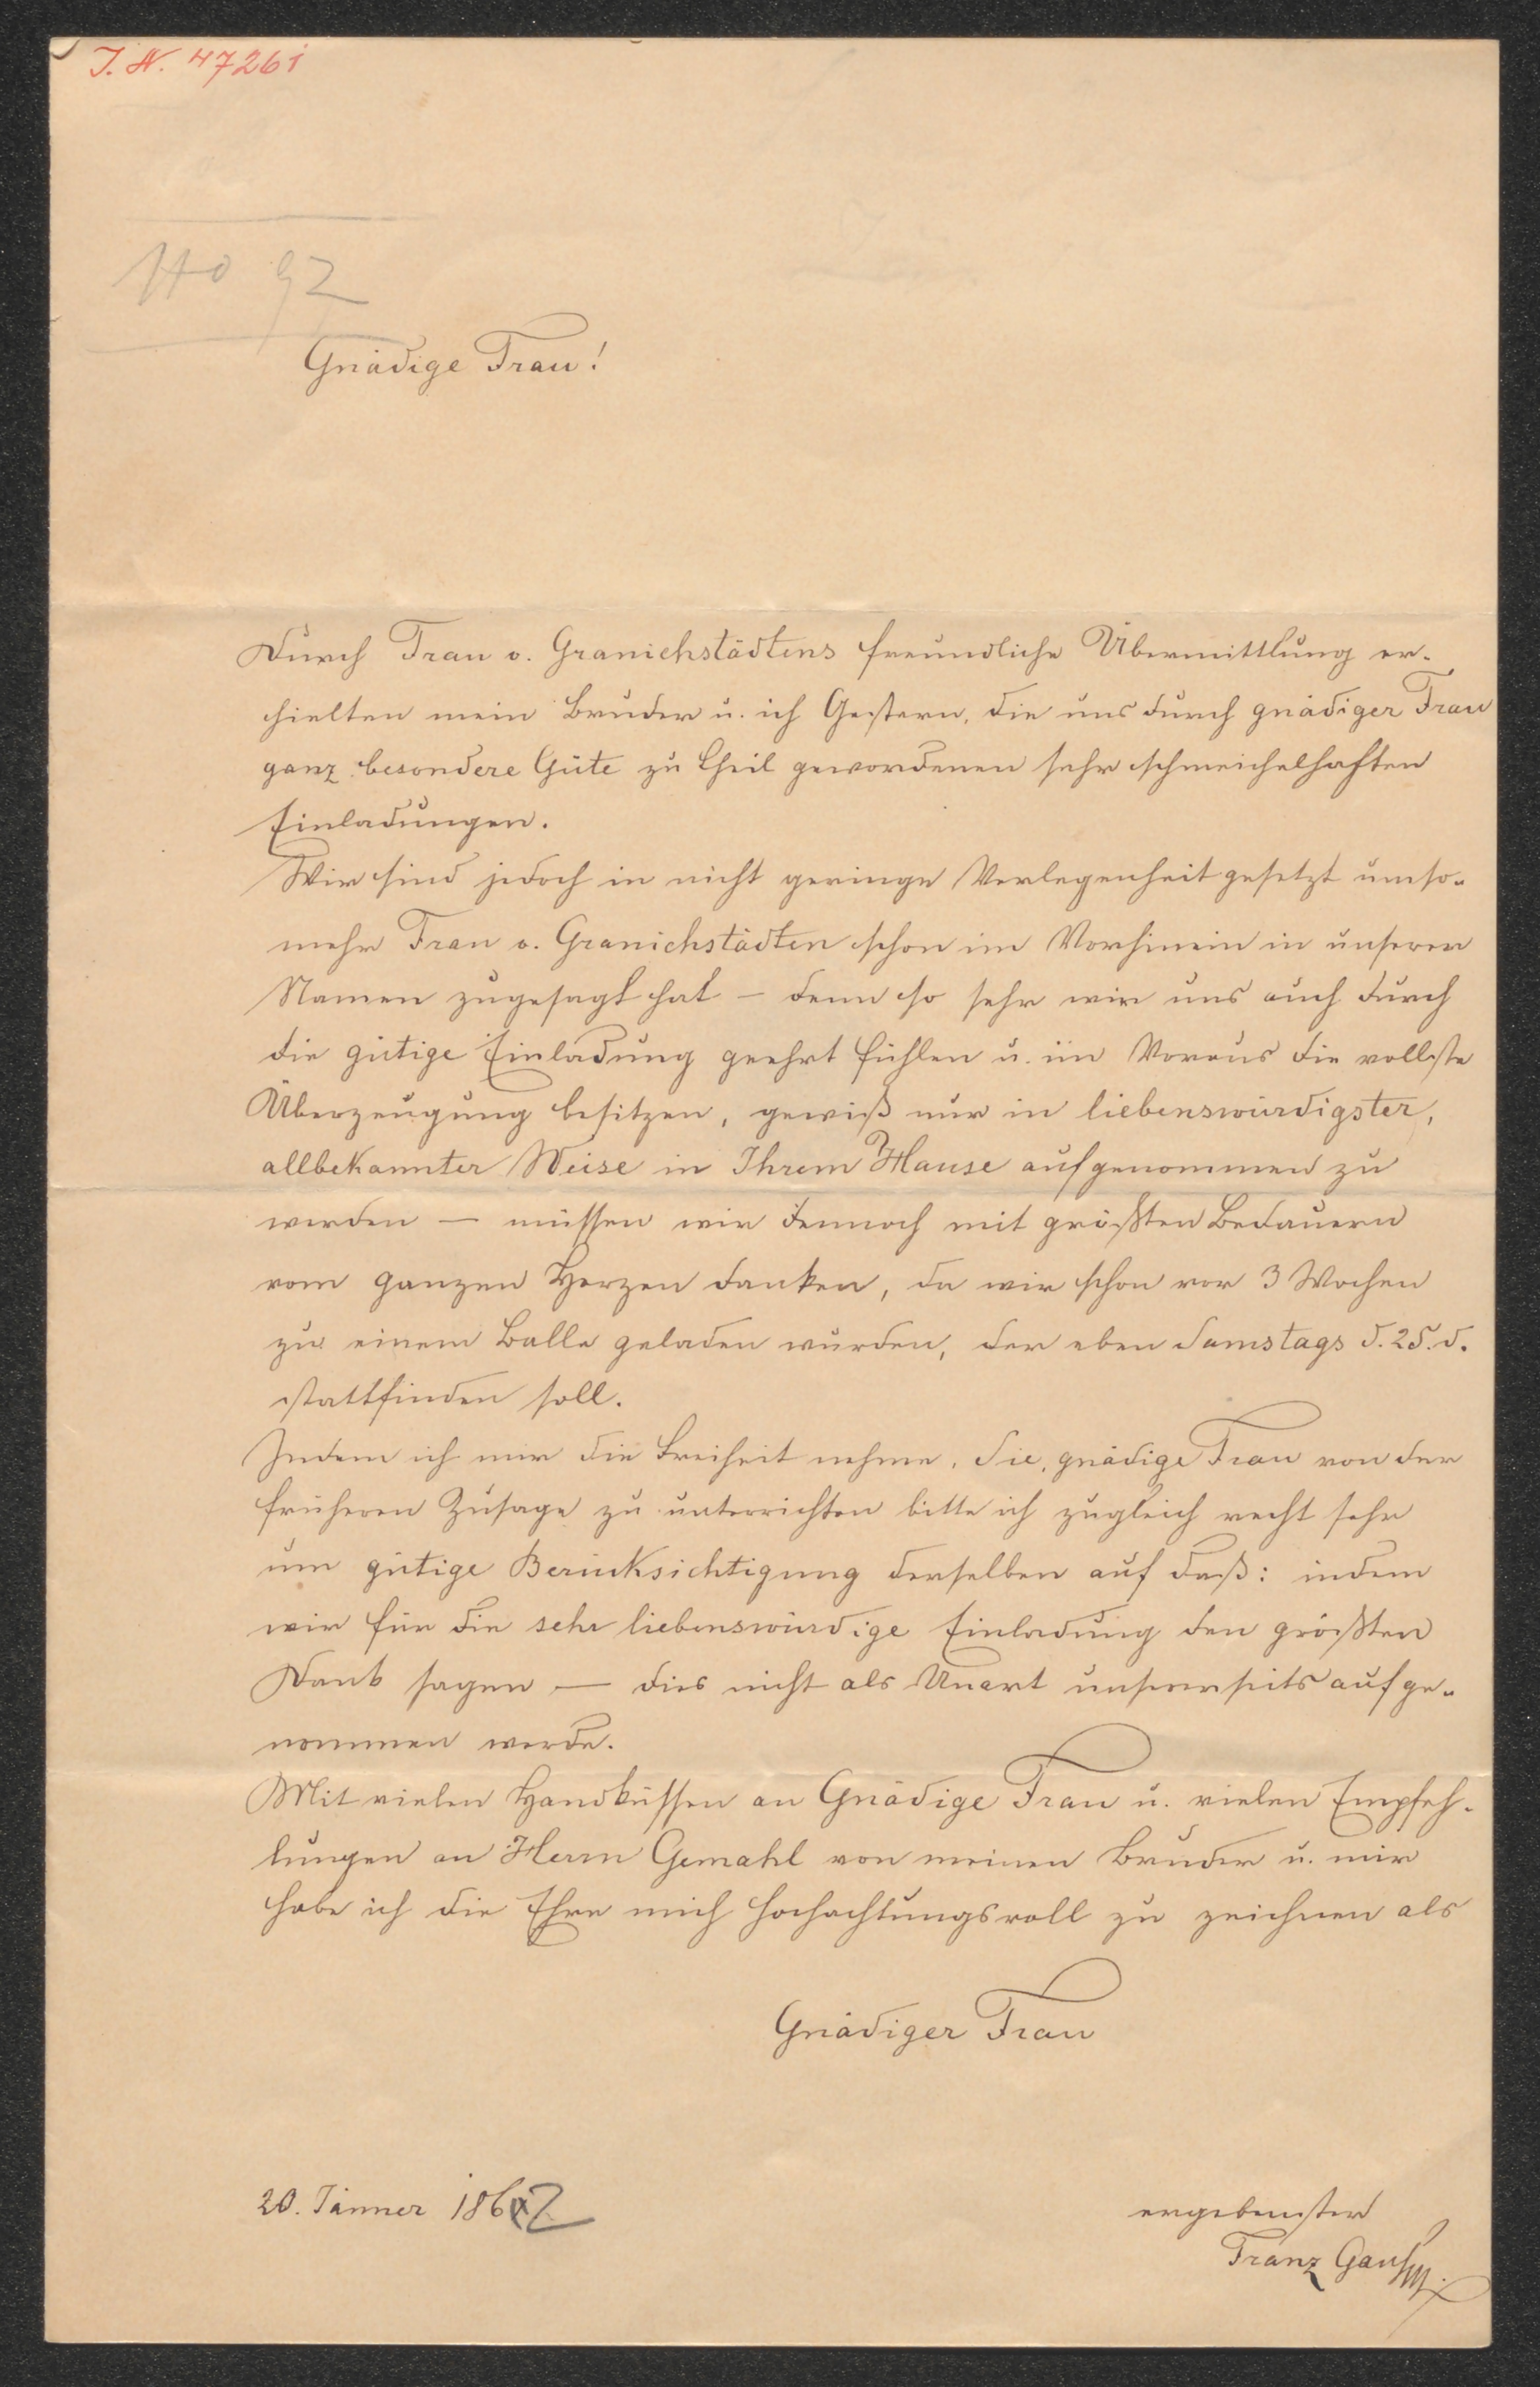 I. N. 47261
No 97
Gnädige Frau!
Durch Frau v. Granichstädtens freundliche Übermittlung er-
hielten mein Bruder u. ich Gestern, die uns durch gnädiger Frau
ganz besondere Güte zu Theil gewordenen sehr schmeichelhaften
Einladungen.
Wir sind jedoch in nicht geringe Verlegenheit gesetzt umso-
mehr Frau v. Granichstädten schon im Vorhinein in unseren
Namen zugesagt hat – denn so sehr wir uns auch durch
die gütige Einladung geehrt fühlen u. im Voraus die vollste
Überzeugung besitzen, gewiß nur in liebenswürdigster,
allbekannter Weise in Ihrem Hause aufgenommen zu
werden – müssen wir dennoch mit größten Bedauern
vom ganzen Herzen danken, da wir schon vor 3 Wochen
zu einem Balle geladen wurden, der eben Samstags d. 25. d.
stattfinden soll.
Indem ich mir die Freiheit nehme, Sie, gnädige Frau von der
früheren Zusage zu unterrichten bitte ich zugleich recht sehr
um gütige Berücksichtigung derselben auf daß: indem
wir für die sehr liebenswürdige Einladung den größten
Dank sagen – dies nicht als Unart unsererseits aufge-
nommen werde.
Mit vielen Handküssen an Gnädige Frau u. vielen Empfeh-
lungen an Herrn Gemahl von meinen Bruder u. mir
habe ich die Ehre mich hochachtungsvoll zu zeichnen als
Gnädiger Frau
20. Jänner 1862
ergebenster
Franz